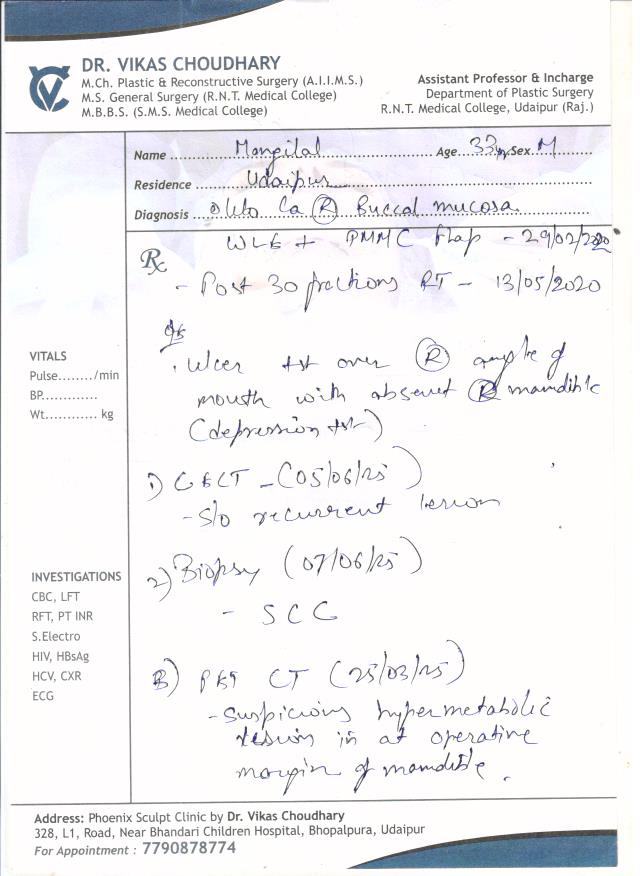 DR. VIKAS CHOUDHARY
M.Ch. Plastic & Reconstructive Surgery (A.I.I.M.S.)
M.S. General Surgery (R.N.T. Medical College)
M.B.B.S. (S.M.S. Medical College)
Assistant Professor & Incharge
Department of Plastic Surgery
R.N.T. Medical College, Udaipur (Raj.)
Name Mangilal Age 33 yr Sex M
Residence Udaipur
Diagnosis Ca (R) Buccal mucosa
WLE + PMMC flap - 29/02/2020
Rx
- Post 30 fractions RT - 13/05/2020
VITALS
Pulse......../min
BP.............
Wt............ kg
. Ulcer +nt over (R) angle of
mouth with absent (R) mandible
(depression +nt)
1) CECT - (05/06/25)
- S/o recurrent lesion
2) Biopsy (07/06/25)
- SCC
INVESTIGATIONS
CBC, LFT
RFT, PT INR
S.Electro
HIV, HBsAg
HCV, CXR
ECG
3) PET CT (25/03/25)
- suspicious hypermetabolic
lesion in at operative
margin of mandible.
Address: Phoenix Sculpt Clinic by Dr. Vikas Choudhary
328, L1, Road, Near Bhandari Children Hospital, Bhopalpura, Udaipur
For Appointment : 7790878774